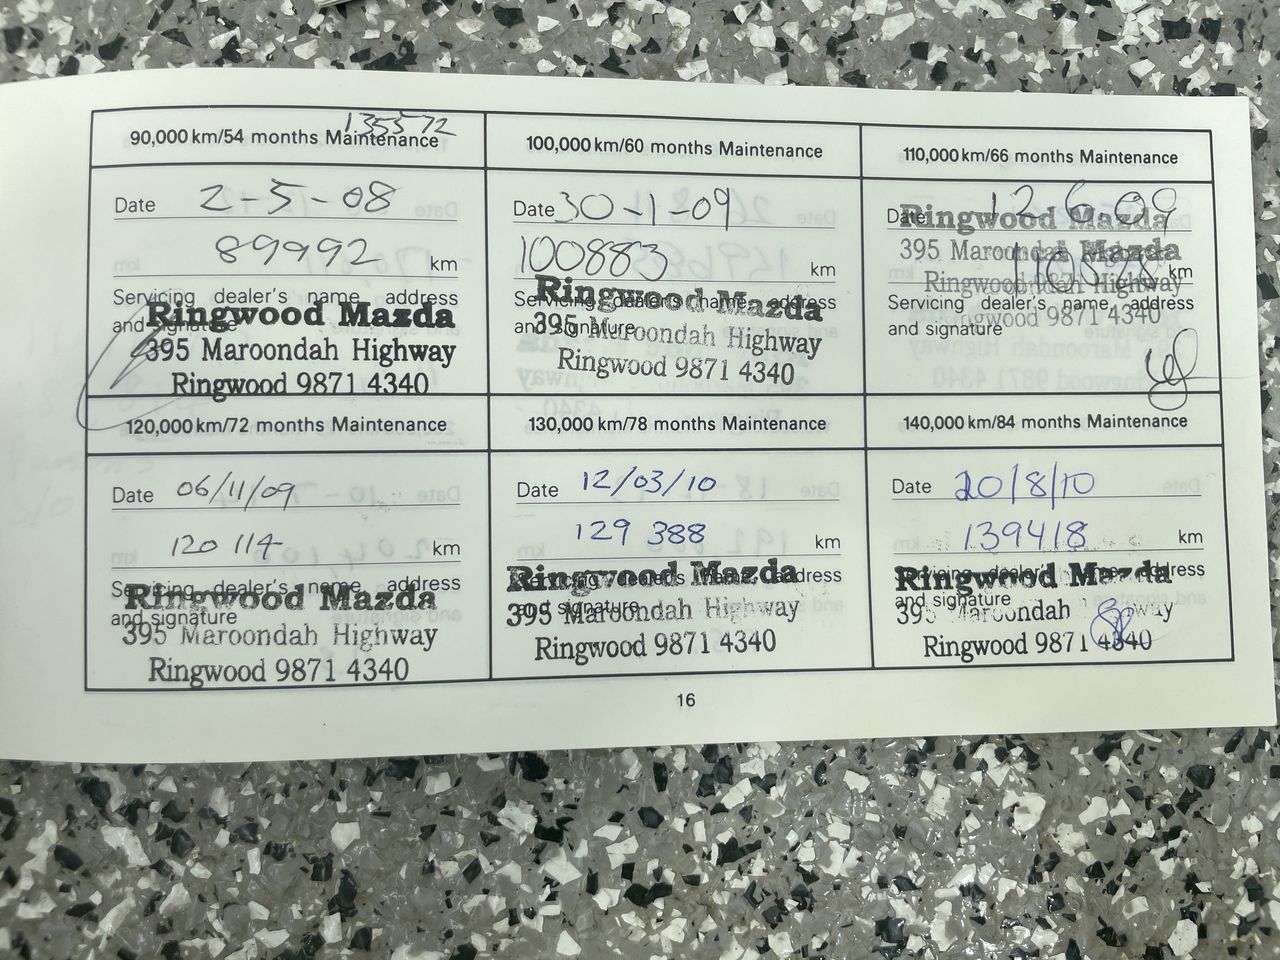 90,000 km/54 months Maintenance
135572
Date 2-5-08
89992 km
Servicing dealer's name address
and signature
Ringwood Mazda
395 Maroondah Highway
Ringwood 9871 4340
100,000 km/60 months Maintenance
Date 30-1-09
100883 km
Servicing dealer's name address
and signature
Ringwood Mazda
395 Maroondah Highway
Ringwood 9871 4340
110,000 km/66 months Maintenance
Date 12.6.09
Ringwood Mazda
395 Maroondah Mazda
km
Ringwood Highway
Servicing dealer's name address
Ringwood 9871 4340
and signature
120,000 km/72 months Maintenance
Date 06/11/09
120 114 km
Servicing dealer's name address
and signature
Ringwood Mazda
395 Maroondah Highway
Ringwood 9871 4340
130,000 km/78 months Maintenance
Date 12/03/10
129 388 km
Servicing dealer's name address
and signature
Ringwood Mazda
395 Maroondah Highway
Ringwood 9871 4340
140,000 km/84 months Maintenance
Date 20/8/10
139418 km
Servicing dealer's name address
and signature
Ringwood Mazda
395 Maroondah Highway
Ringwood 9871 4340
16